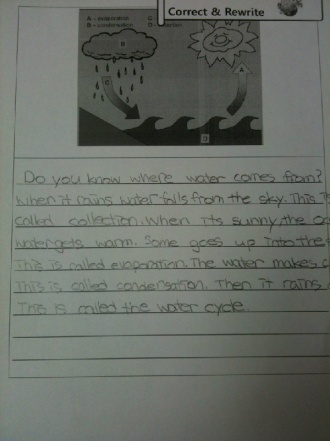 Correct & Rewrite
A = evaporation C
B = condensation D = collection
B
C
A
D
Do you know where water comes from?
When it rains water falls from the sky. This is
called collection. When its sunny the oc
water gets warm. Some goes up into the
This is called evaporation. The water makes c
This is called condensation. Then it rains a
This is called the water cycle.